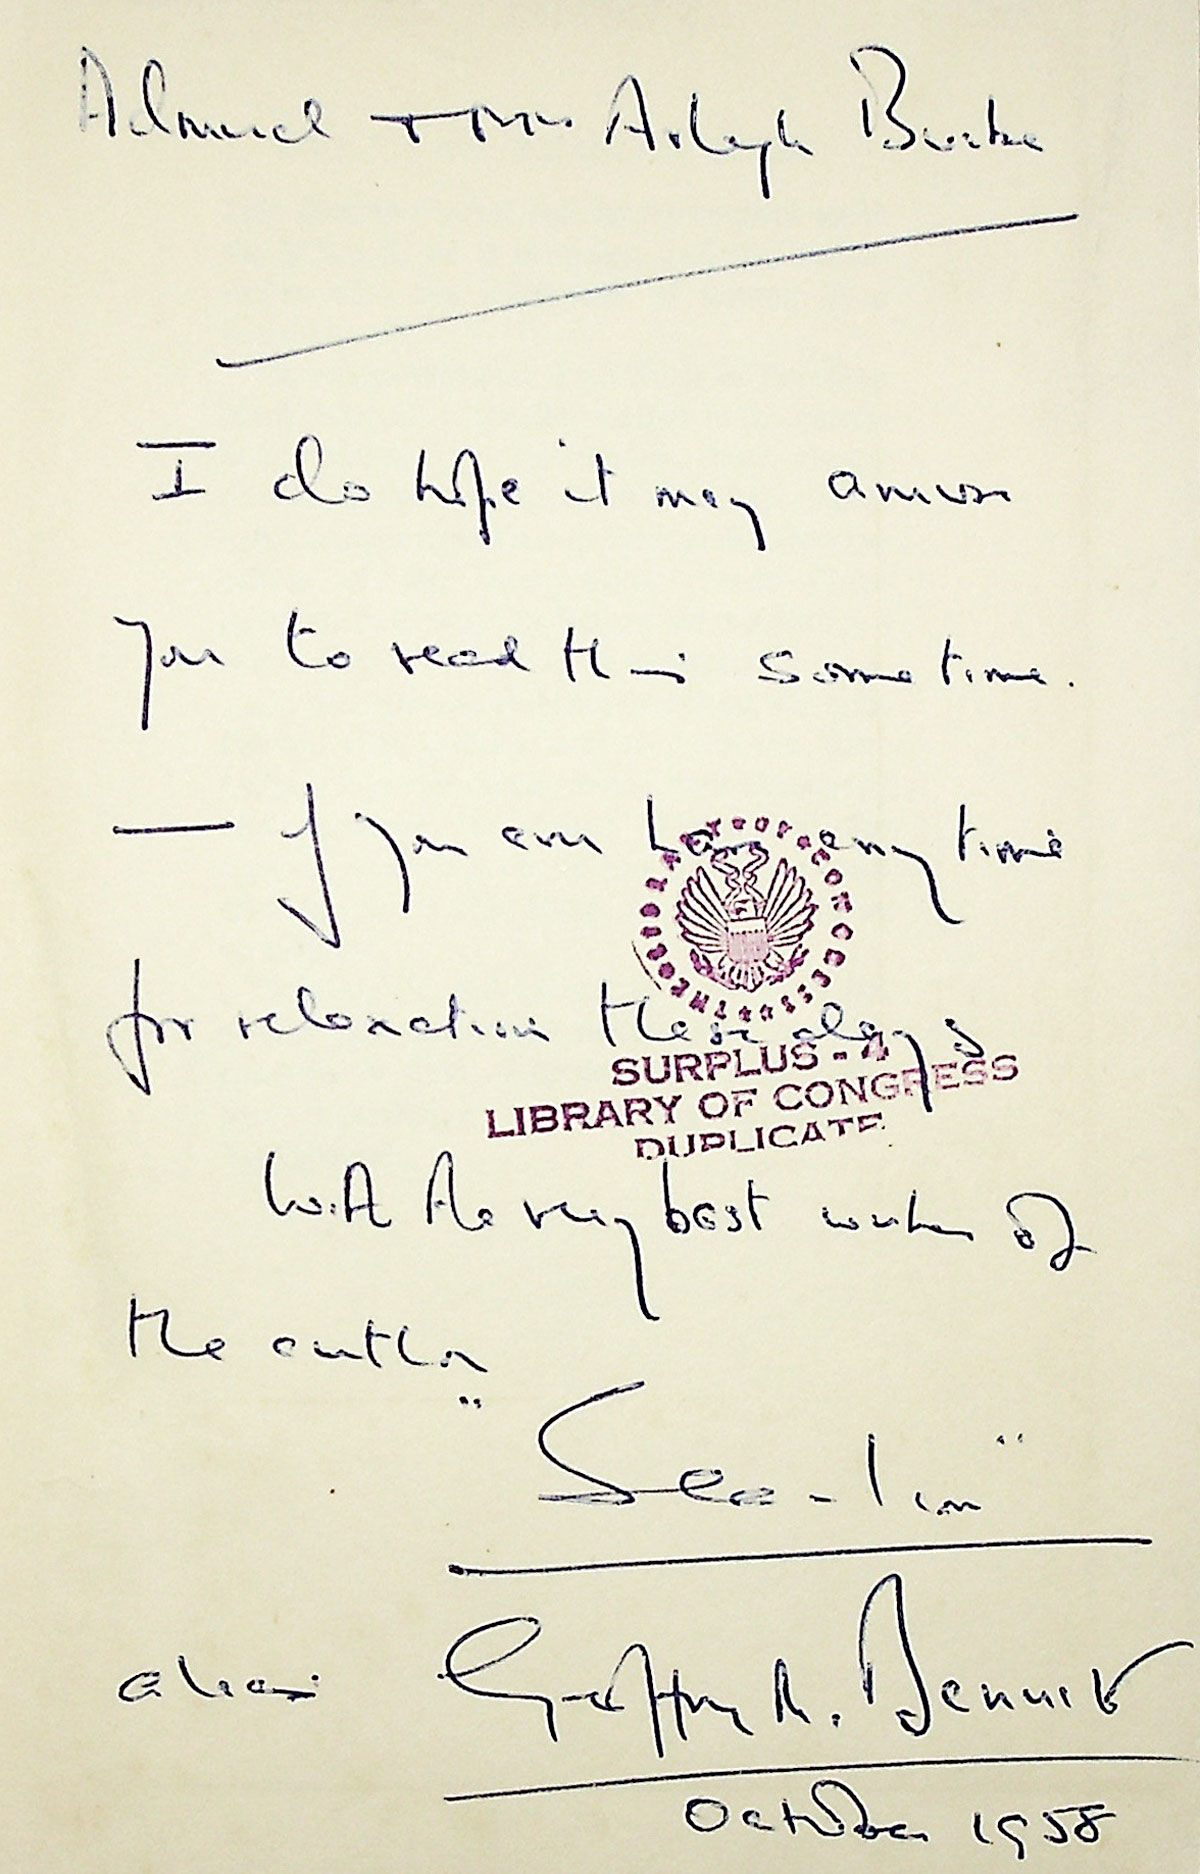 Admiral + Mrs Arleigh Burke
I do hope it may amuse
you to read this sometime.
— if you ever have any time
for relaxation these days
THE LIBRARY OF CONGRESS
SURPLUS - 4
LIBRARY OF CONGRESS
DUPLICATE
With the very best wishes of
the author
"Sea-Lion"
alias Geoffrey M. Bennett
October 1958